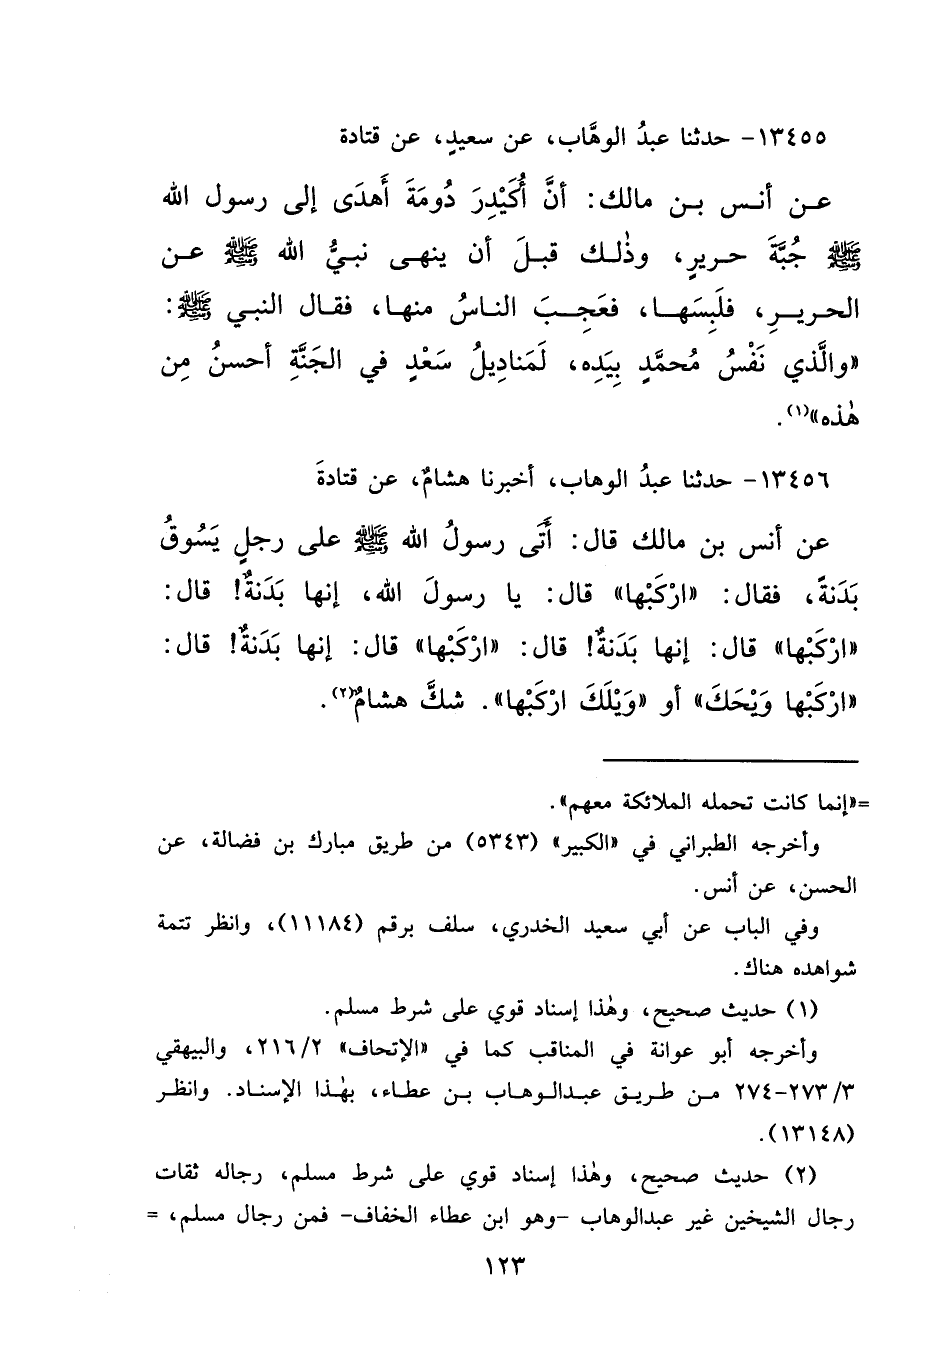 ١٣٤٥٥- حدثنا عبدُ الوهَّاب، عن سعيدٍ، عن قتادة
عـن أنـس بـن مالك: أنَّ أُكَيْدِرَ دُومَةَ أَهدَى إلى رسول الله
ﷺ جُبَّةَ حريرٍ، وذٰلك قبلَ أن ينهى نبيُّ الله ﷺ عن
الحريرِ، فلَبِسَها، فعَجِبَ الناسُ منها، فقال النبي ﷺ:
«والَّذي نَفْسُ مُحمَّدٍ بِيَدِه، لَمَنادِيلُ سَعْدٍ في الجَنَّةِ أحسنُ مِن
هٰذه»(١).
١٣٤٥٦- حدثنا عبدُ الوهاب، أخبرنا هشامٌ، عن قتادةَ
عن أنس بن مالك قال: أَتَى رسولُ الله ﷺ على رجلٍ يَسُوقُ
بَدَنةً، فقال: «ارْكَبْها» قال: يا رسولَ الله، إنها بَدَنةٌ! قال:
«ارْكَبْها» قال: إنها بَدَنةٌ! قال: «ارْكَبْها» قال: إنها بَدَنةٌ! قال:
«ارْكَبْها وَيْحَكَ» أو «وَيْلَكَ ارْكَبْها». شكَّ هشامٌ(٢).
=«إنما كانت تحمله الملائكة معهم».
وأخرجه الطبراني في «الكبير» (٥٣٤٣) من طريق مبارك بن فضالة، عن
الحسن، عن أنس.
وفي الباب عن أبي سعيد الخدري، سلف برقم (١١١٨٤)، وانظر تتمة
شواهده هناك.
(١) حديث صحيح، وهٰذا إسناد قوي على شرط مسلم.
وأخرجه أبو عوانة في المناقب كما في «الإتحاف» ٢١٦/٢، والبيهقي
٢٧٣/٣-٢٧٤ من طريق عبدالوهاب بن عطاء، بهٰذا الإسناد. وانظر
(١٣١٤٨).
(٢) حديث صحيح، وهٰذا إسناد قوي على شرط مسلم، رجاله ثقات
رجال الشيخين غير عبدالوهاب -وهو ابن عطاء الخفاف- فمن رجال مسلم، =
١٢٣